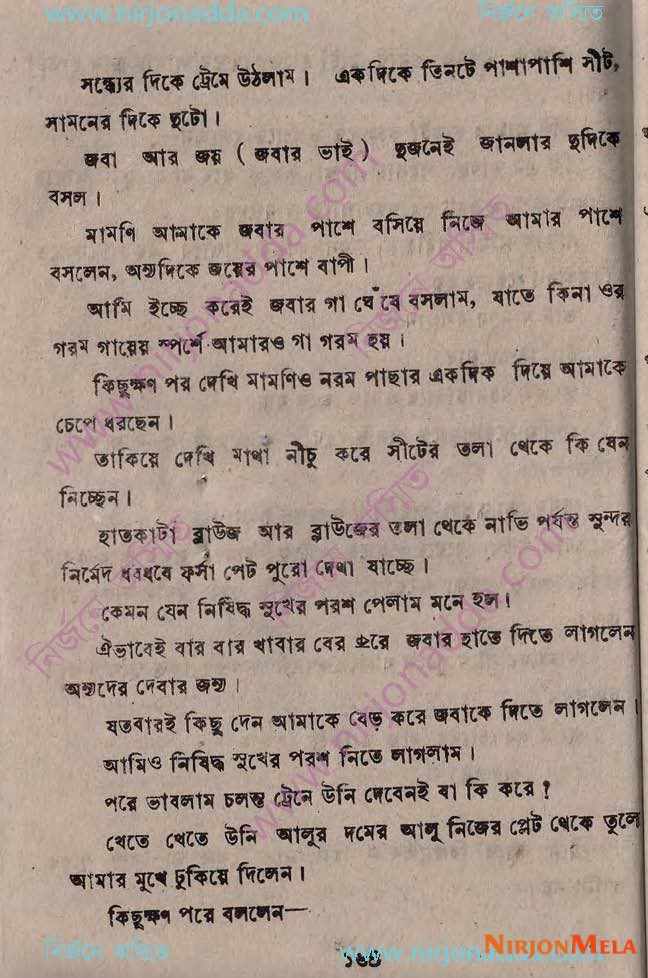 www.nirjonadda.com
নির্জনে অস্যিত
সন্ধ্যের দিকে ট্রেনে উঠলাম। একদিকে তিনটে পাশাপাশি সীট,
সামনের দিকে দুটো।
জবা আর জয় ( জবার ভাই ) দুজনেই জানলার দুদিকে
বসল।
মামণি আমাকে জবার পাশে বসিয়ে নিজে আমার পাশে
বসলেন, অন্যদিকে জয়ের পাশে বাপী।
আমি ইচ্ছে করেই জবার গা ঘেঁষে বসলাম, যাতে কিনা ওর
গরম গায়ের স্পর্শে আমারও গা গরম হয়।
কিছুক্ষণ পর দেখি মামণিও নরম পাছার একদিক দিয়ে আমাকে
চেপে ধরছেন।
তাকিয়ে দেখি মাথা নীচু করে সীটের তলা থেকে কি যেন
নিচ্ছেন।
হাতকাটা ব্লাউজ আর ব্লাউজের তলা থেকে নাভি পর্যন্ত সুন্দর
নির্মেদ ধবধবে ফর্সা পেট পুরো দেখা যাচ্ছে।
কেমন যেন নিষিদ্ধ সুখের পরশ পেলাম মনে হল।
ঐভাবেই বার বার খাবার বের করে জবার হাতে দিতে লাগলেন
অন্যদের দেবার জন্য।
যতবারই কিছু দেন আমাকে বেড় করে জবাকে দিতে লাগলেন।
আমিও নিষিদ্ধ সুখের পরশ নিতে লাগলাম।
পরে ভাবলাম চলন্ত ট্রেনে উনি দেবেনই বা কি করে?
খেতে খেতে উনি আলুর দমের আলু নিজের প্লেট থেকে তুলে
আমার মুখে ঢুকিয়ে দিলেন।
কিছুক্ষণ পরে বললেন—
নির্জনে অস্যিত
www.nirjonadda.com
NIRJONMELA